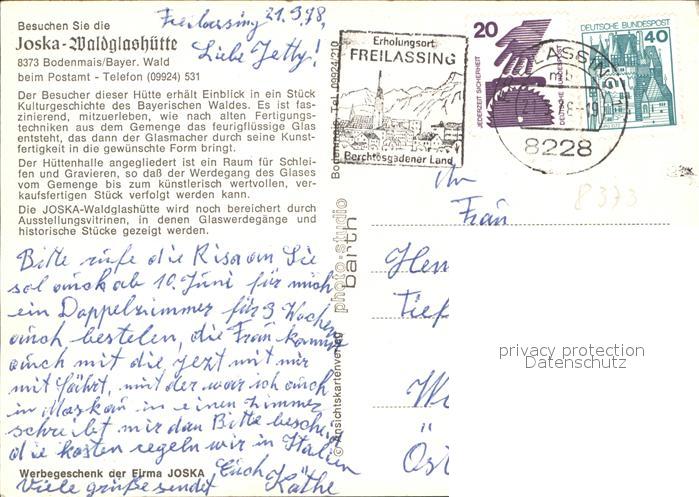 Besuchen Sie die
Joska-Waldglashütte
8373 Bodenmais/Bayer. Wald
beim Postamt - Telefon (09924) 531
Der Besucher dieser Hütte erhält Einblick in ein Stück
Kulturgeschichte des Bayerischen Waldes. Es ist fas-
zinierend, mitzuerleben, wie nach alten Fertigungs-
techniken aus dem Gemenge das feurigflüssige Glas
entsteht, das dann der Glasmacher durch seine Kunst-
fertigkeit in die gewünschte Form bringt.
Der Hüttenhalle angegliedert ist ein Raum für Schlei-
fen und Gravieren, so daß der Werdegang des Glases
vom Gemenge bis zum künstlerisch wertvollen, ver-
kaufsfertigen Stück verfolgt werden kann.
Die JOSKA-Waldglashütte wird noch bereichert durch
Ausstellungsvitrinen, in denen Glaswerdegänge und
historische Stücke gezeigt werden.
Freilassing 21.9.78,
Liebe Jetty!
Bitte rufe die Risa an Sie
sol auch ab 10. Juni für mich
ein Doppelzimmer für 3 Wochen
auch bestelen, die Frau kommt
auch mit die jezt mit mir
mit fährt, mit der war ich auch
in in einen Zimmer
schreibt mir dan Bitte bescheid
die kosten regeln wir in Italien
Viele grüße sendet Euch Käthe
Werbegeschenk der Firma JOSKA
Bodenmais, Tel. 09924/210
photo-studio
barth
© Ansichtskartenverlag
Erholungsort
FREILASSING
Berchtesgadener Land
20
JEDERZEIT SICHERHEIT
DEUTSCHE BUNDESPOST
40
LASSING
mb
8228
An
Frau
8373
Tief
Öst
privacy protection
Datenschutz